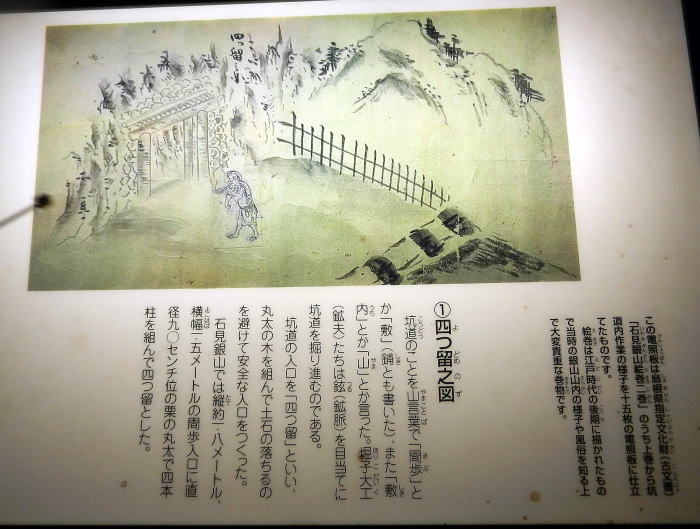 この電照板は島根県指定文化財(古文書)
「石見銀山絵巻二巻」のうち上巻から坑
道内作業の様子を十五枚の電照板に仕立
てたものです。
絵巻は江戸時代の後期に描かれたもの
で当時の銀山山内の様子や風俗を知る上
で大変貴重な巻物です。
①四つ留之図
坑道のことを山言葉で「間歩」と
か「敷」(鋪とも書いた)、また「敷
内」とか「山」とか言った。堀子大工
(鉱夫)たちは鉉(鉱脈)を目当てに
坑道を掘り進むのである。
坑道の入口を「四つ留」といい、
丸太の木を組んで土石の落ちるの
を避けて安全な入口をつくった。
石見銀山では縦約一・八メートル、
横幅一・五メートルの間歩入口に直
径九〇センチ位の栗の丸太で四本
柱を組んで四つ留とした。